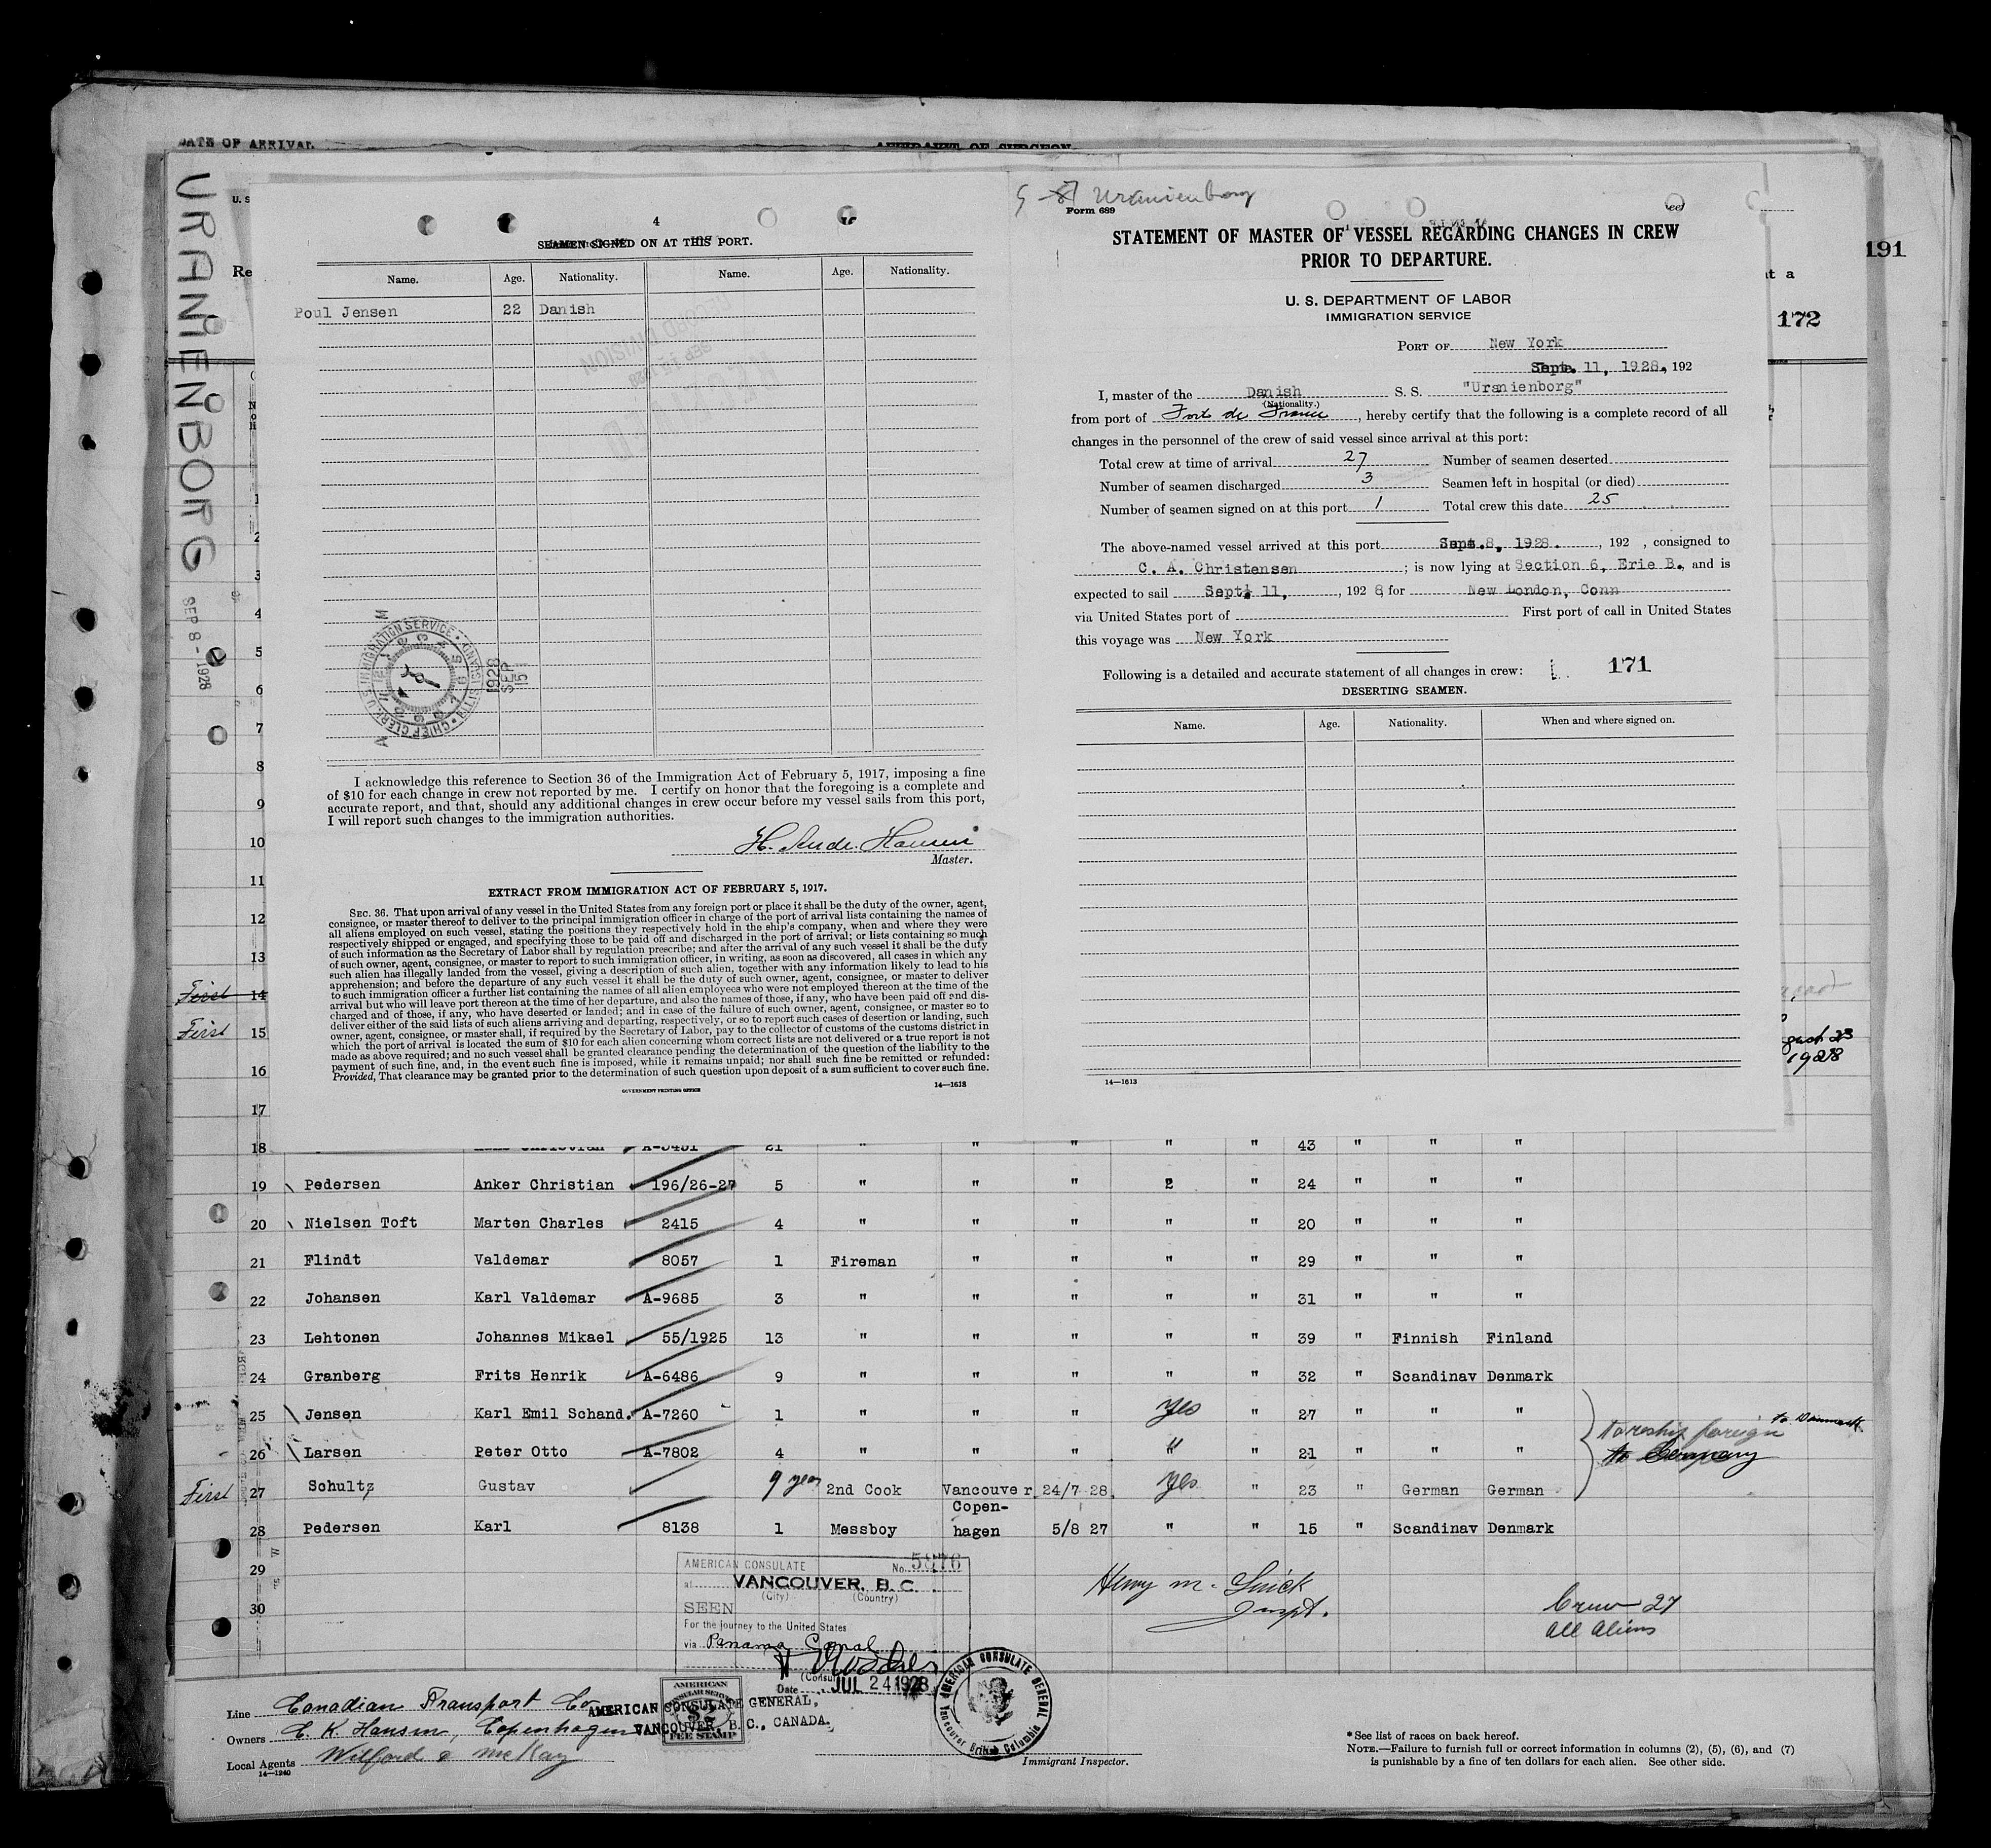 DATE OF ARRIVAL
AFFIDAVIT OF SURGEON
URANIENBORG
SEP 8 - 1928
191
172
4
SEAMEN SIGNED ON AT THIS PORT.
Name. Age. Nationality. Name. Age. Nationality.
Poul Jensen 22 Danish
RECORD DIVISION
SEP 1928
RECEIVED
CHIEF CLERK U.S. IMMIGRATION SERVICE ELLIS ISLAND
1928 SEP 15
I acknowledge this reference to Section 36 of the Immigration Act of February 5, 1917, imposing a fine
of $10 for each change in crew not reported by me. I certify on honor that the foregoing is a complete and
accurate report, and that, should any additional changes in crew occur before my vessel sails from this port,
I will report such changes to the immigration authorities.
H. Andr. Hansen
Master.
EXTRACT FROM IMMIGRATION ACT OF FEBRUARY 5, 1917.
SEC. 36. That upon arrival of any vessel in the United States from any foreign port or place it shall be the duty of the owner, agent,
consignee, or master thereof to deliver to the principal immigration officer in charge of the port of arrival lists containing the names of
all aliens employed on such vessel, stating the positions they respectively hold in the ship's company, when and where they were
respectively shipped or engaged, and specifying those to be paid off and discharged in the port of arrival; or lists containing so much
of such information as the Secretary of Labor shall by regulation prescribe; and after the arrival of any such vessel it shall be the duty
of such owner, agent, consignee, or master to report to such immigration officer, in writing, as soon as discovered, all cases in which any
such alien has illegally landed from the vessel, giving a description of such alien, together with any information likely to lead to his
apprehension; and before the departure of any such vessel it shall be the duty of such owner, agent, consignee, or master to deliver
to such immigration officer a further list containing the names of all alien employees who were not employed thereon at the time of the
arrival but who will leave port thereon at the time of her departure, and also the names of those, if any, who have been paid off and dis-
charged and of those, if any, who have deserted or landed; and in case of the failure of such owner, agent, consignee, or master so to
deliver either of the said lists of such aliens arriving and departing, respectively, or so to report such cases of desertion or landing, such
owner, agent, consignee, or master shall, if required by the Secretary of Labor, pay to the collector of customs of the customs district in
which the port of arrival is located the sum of $10 for each alien concerning whom correct lists are not delivered or a true report is not
made as above required; and no such vessel shall be granted clearance pending the determination of the question of the liability to the
payment of such fine, and, in the event such fine is imposed, while it remains unpaid; nor shall such fine be remitted or refunded:
Provided, That clearance may be granted prior to the determination of such question upon deposit of a sum sufficient to cover such fine.
GOVERNMENT PRINTING OFFICE 14—1613
Uranienborg
Form 689
STATEMENT OF MASTER OF VESSEL REGARDING CHANGES IN CREW
PRIOR TO DEPARTURE.
U. S. DEPARTMENT OF LABOR
IMMIGRATION SERVICE
PORT OF New York
Sept. 11, 1928, 192
I, master of the Danish S. S. "Uranienborg"
(Nationality.)
from port of Fort de France, hereby certify that the following is a complete record of all
changes in the personnel of the crew of said vessel since arrival at this port:
Total crew at time of arrival 27 Number of seamen deserted
Number of seamen discharged 3 Seamen left in hospital (or died)
Number of seamen signed on at this port 1 Total crew this date 25
The above-named vessel arrived at this port Sept. 8, 1928. , 192 , consigned to
C. A. Christensen ; is now lying at Section 6, Erie B., and is
expected to sail Sept. 11, , 192 8, for New London, Conn
via United States port of First port of call in United States
this voyage was New York
Following is a detailed and accurate statement of all changes in crew: 171
DESERTING SEAMEN.
Name. Age. Nationality. When and where signed on.
14—1613
1
2
3
4
5
6
7
8
9
10
11
12
13
First 14
First 15
16
17
1928
18 A-5451 21 " " " " " 43 " " "
19 Pedersen Anker Christian 196/26-27 5 " " " 2 " 24 " " "
20 Nielsen Toft Marten Charles 2415 4 " " " " " 20 " " "
21 Flindt Valdemar 8057 1 Fireman " " " " 29 " " "
22 Johansen Karl Valdemar A-9685 3 " " " " " 31 " " "
23 Lehtonen Johannes Mikael 55/1925 13 " " " " " 39 " Finnish Finland
24 Granberg Frits Henrik A-6486 9 " " " " " 32 " Scandinav Denmark
25 Jensen Karl Emil Schand. A-7260 1 " " " Yes " 27 " " "
26 Larsen Peter Otto A-7802 4 " " " " " 21 " " "
to reship foreign to Denmark
to Germany
First 27 Schultz Gustav 9 year 2nd Cook Vancouver 24/7 28 Yes " 23 " German German
28 Pedersen Karl 8138 1 Messboy Copen-
hagen 5/8 27 " " 15 " Scandinav Denmark
29
30
AMERICAN CONSULATE No. 5876
at VANCOUVER, B. C.
(City) (Country)
SEEN
For the journey to the United States
via Panama Canal
Date JUL 24 1928
AMERICAN CONSULATE GENERAL,
VANCOUVER, B. C., CANADA.
AMERICAN CONSULAR SERVICE $2 FEE STAMP
AMERICAN CONSULATE GENERAL Vancouver British Columbia
Henry M.
Inspt.
Crew 27
All Aliens
Line Canadian Transport Co
Owners C. K. Hansen, Copenhagen
Local Agents Wilford & McKay
14—1240
Immigrant Inspector.
* See list of races on back hereof.
NOTE.—Failure to furnish full or correct information in columns (2), (5), (6), and (7)
is punishable by a fine of ten dollars for each alien. See other side.